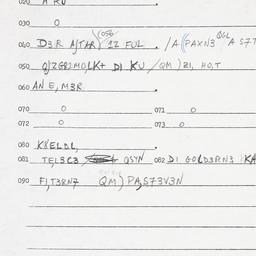 020 A KU
030 O
040 D3R A)TAR) 12 FUL . /A (PAXN3 QGL A S7T
050 Q)ZGR2MO,LK+ DI KU /QM) ZI, HO,T
060 AN E, M3R
070 O 071 O
072 O 073 O
080 K)ELDL,
081 TE,L3C3 QSYN 082 DI GOLD3RN3 KA
090 F),T3RN7 QM) PA,S73V3N